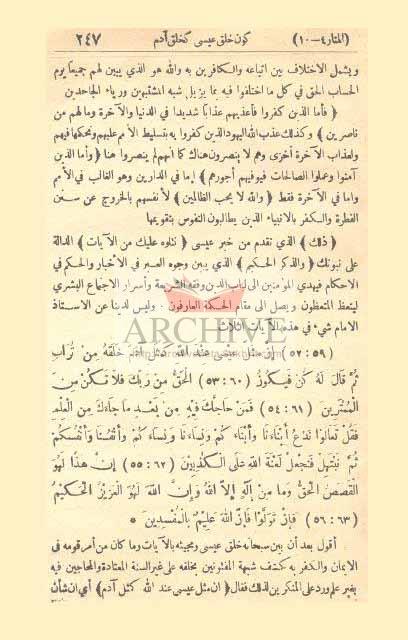 (المنار ٤ — ١٠) كون خلق عيسى كخلق آدم ٢٤٧
ويشمل الاختلاف بين اتباعه والكافرين به والله هو الذي يبين لهم جميعا يوم
الحساب الحق في كل ما اختلفوا فيه بما يزيل شبه المشتبهين ورياء الجاحدين
﴿ فأما الذين كفروا فأعذبهم عذابا شديدا في الدنيا والآخرة وما لهم من
ناصرين ﴾ وكذلك عذب الله اليهود الذين كفروا به بتسليط الأمم عليهم وتحكمها فيهم
ولعذاب الآخرة أخزى وهم لا ينصرون هناك كما انهم لم ينصروا هنا ﴿ وأما الذين
آمنوا وعملوا الصالحات فيوفيهم أجورهم ﴾ إما في الدارين وهو الغالب في الأمم
واما في الآخرة فقط ﴿ والله لا يحب الظالمين ﴾ لأنفسهم بالخروج عن سنن
الفطرة والكفر بالانبياء الذين يطالبون النفوس بتقويمها
﴿ ذلك ﴾ الذي تقدم من خبر عيسى ﴿ نتلوه عليك من الآيات ﴾ الدالة
على نبوتك ﴿ والذكر الحكيم ﴾ الذي يبين وجوه العبر في الأخبار والحكم في
الاحكام فيهدي المؤمنين الى لباب الدين وفقه الشريعة وأسرار الاجتماع البشري
ليتعظ المتعظون ويصل الى مقام الحكمة العارفون. وليس لدينا عن الاستاذ
الامام شيء في هذه الآيات الثلاث
ARCHIVE
(٥٢:٥٩) إِنَّ مَثَلَ عِيسَى عِنْدَ اللهِ كَمَثَلِ آدَمَ خَلَقَهُ مِنْ تُرَابٍ
ثُمَّ قَالَ لَهُ كُنْ فَيَكُونُ (٥٣:٦٠) الْحَقُّ مِنْ رَبِّكَ فَلَا تَكُنْ مِنَ
الْمُمْتَرِينَ (٥٤:٦١) فَمَنْ حَاجَّكَ فِيهِ مِنْ بَعْدِ مَا جَاءَكَ مِنَ الْعِلْمِ
فَقُلْ تَعَالَوْا نَدْعُ أَبْنَاءَنَا وَأَبْنَاءَكُمْ وَنِسَاءَنَا وَنِسَاءَكُمْ وَأَنْفُسَنَا وَأَنْفُسَكُمْ
ثُمَّ نَبْتَهِلْ فَنَجْعَلْ لَعْنَةَ اللهِ عَلَى الْكَاذِبِينَ (٥٥:٦٢) إِنَّ هَذَا لَهُوَ
الْقَصَصُ الْحَقُّ وَمَا مِنْ إِلَهٍ إِلَّا اللهُ وَإِنَّ اللهَ لَهُوَ الْعَزِيزُ الْحَكِيمُ
(٥٦:٦٣) فَإِنْ تَوَلَّوْا فَإِنَّ اللهَ عَلِيمٌ بِالْمُفْسِدِينَ *
أقول بعد أن بين سبحانه خلق عيسى ومجيئه بالآيات وما كان من أمر قومه في
الايمان والكفر به كشف شبهة المفتونين بخلقه على غير السنة المعتادة والمحاجين فيه
بغير علم ورد على المنكرين لذلك فقال ﴿ ان مثل عيسى عند الله كمثل آدم ﴾ أي ان شأن